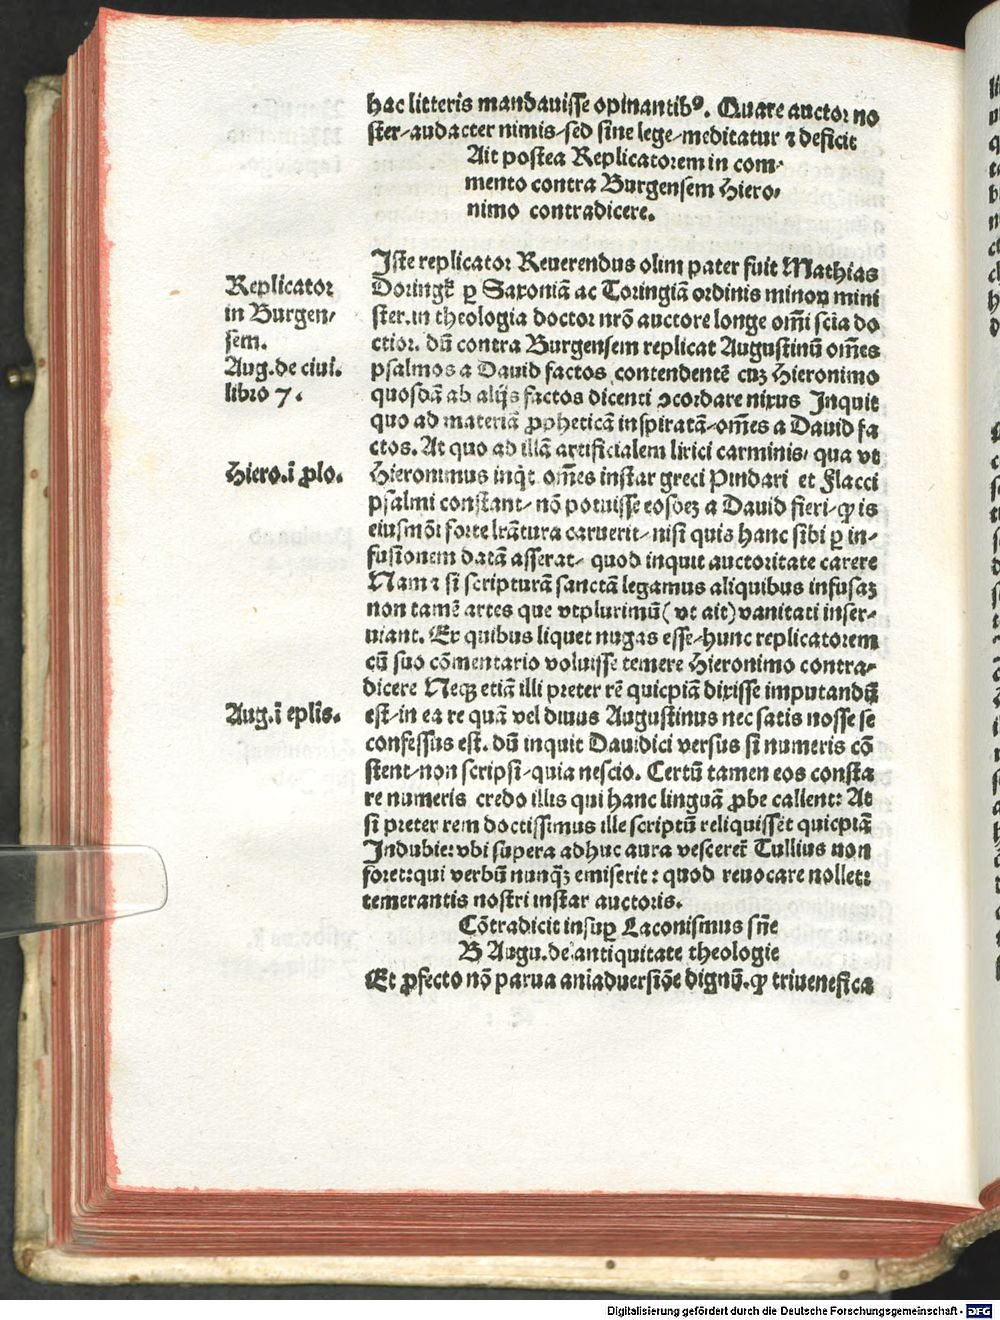 hac litteris mandauisse opinantibꝰ. Quare auctor no
ster/audacter nimis/sed sine lege/meditatur ⁊ deficit
Ait postea Replicatorem in com/
mento contra Burgensem Hiero/
nimo contradicere.
Iste replicator Reuerendus olim pater fuit Mathias
Replicator
in Burgen/
sem.
Doringk ꝑ Saxoniā ac Toringiā ordinis minoꝝ mini
ster.in theologia doctor nrō auctore longe omī scīa do
ctior. dū contra Burgensem replicat Augustinū omēs
Aug.de ciui.
libro 7.
psalmos a Dauid factos contendentē cuꝫ Hieronimo
quosdā ab alijs factos dicenti ꝯcordare nixus Inquit
quo ad materiā ꝓpheticā inspiratā/omēs a Dauid fa
ctos. At quo ad illā artificialem lirici carminis/ qua vt
Hiero.ī ꝓlo.
Hieronimus inqͥt omēs instar greci Pindari et Flacci
psalmi constant/ nō potuisse eosdeꝫ a Dauid fieri/ꝙ is
eiusmōi forte lrātura caruerit/ nisi quis hanc sibi ꝑ in/
fusionem datā asserat/ quod inquit auctoritate carere
Nam ⁊ si scripturā sanctā legamus aliquibus infusaꝫ
non tamē artes que vtplurimū( vt ait) vanitati inser/
uiant. Ex quibus liquet nugas esse/hunc replicatorem
cū suo cōmentario voluisse temere Hieronimo contra/
dicere Neqꝫ etiā illi preter rē quicpiā dixisse imputandū
Aug.ī eplis.
est/in ea re quā vel diuus Augustinus nec satis nosse se
confessus est. dū inquit Dauidici versus si numeris cō
stent/non scripsi/quia nescio. Certū tamen eos consta
re numeris credo illis qui hanc linguā ꝓbe callent: At
si preter rem doctissimus ille scriptū reliquissēt quicpiā
Indubie:vbi supera adhuc aura vesceret̄ Tullius non
foret:qui verbū nunqꝫ̄ emiserit: quod reuocare nollet:
temerantis nostri instar auctoris.
Cōtradicit insuꝑ Laconismus sn̄e
B Augu.de antiquitate theologie
Et ꝓfecto nō parua aniaduersiōe dignū.ꝙ triuenefica
Digitalisierung gefördert durch die Deutsche Forschungsgemeinschaft - DFG